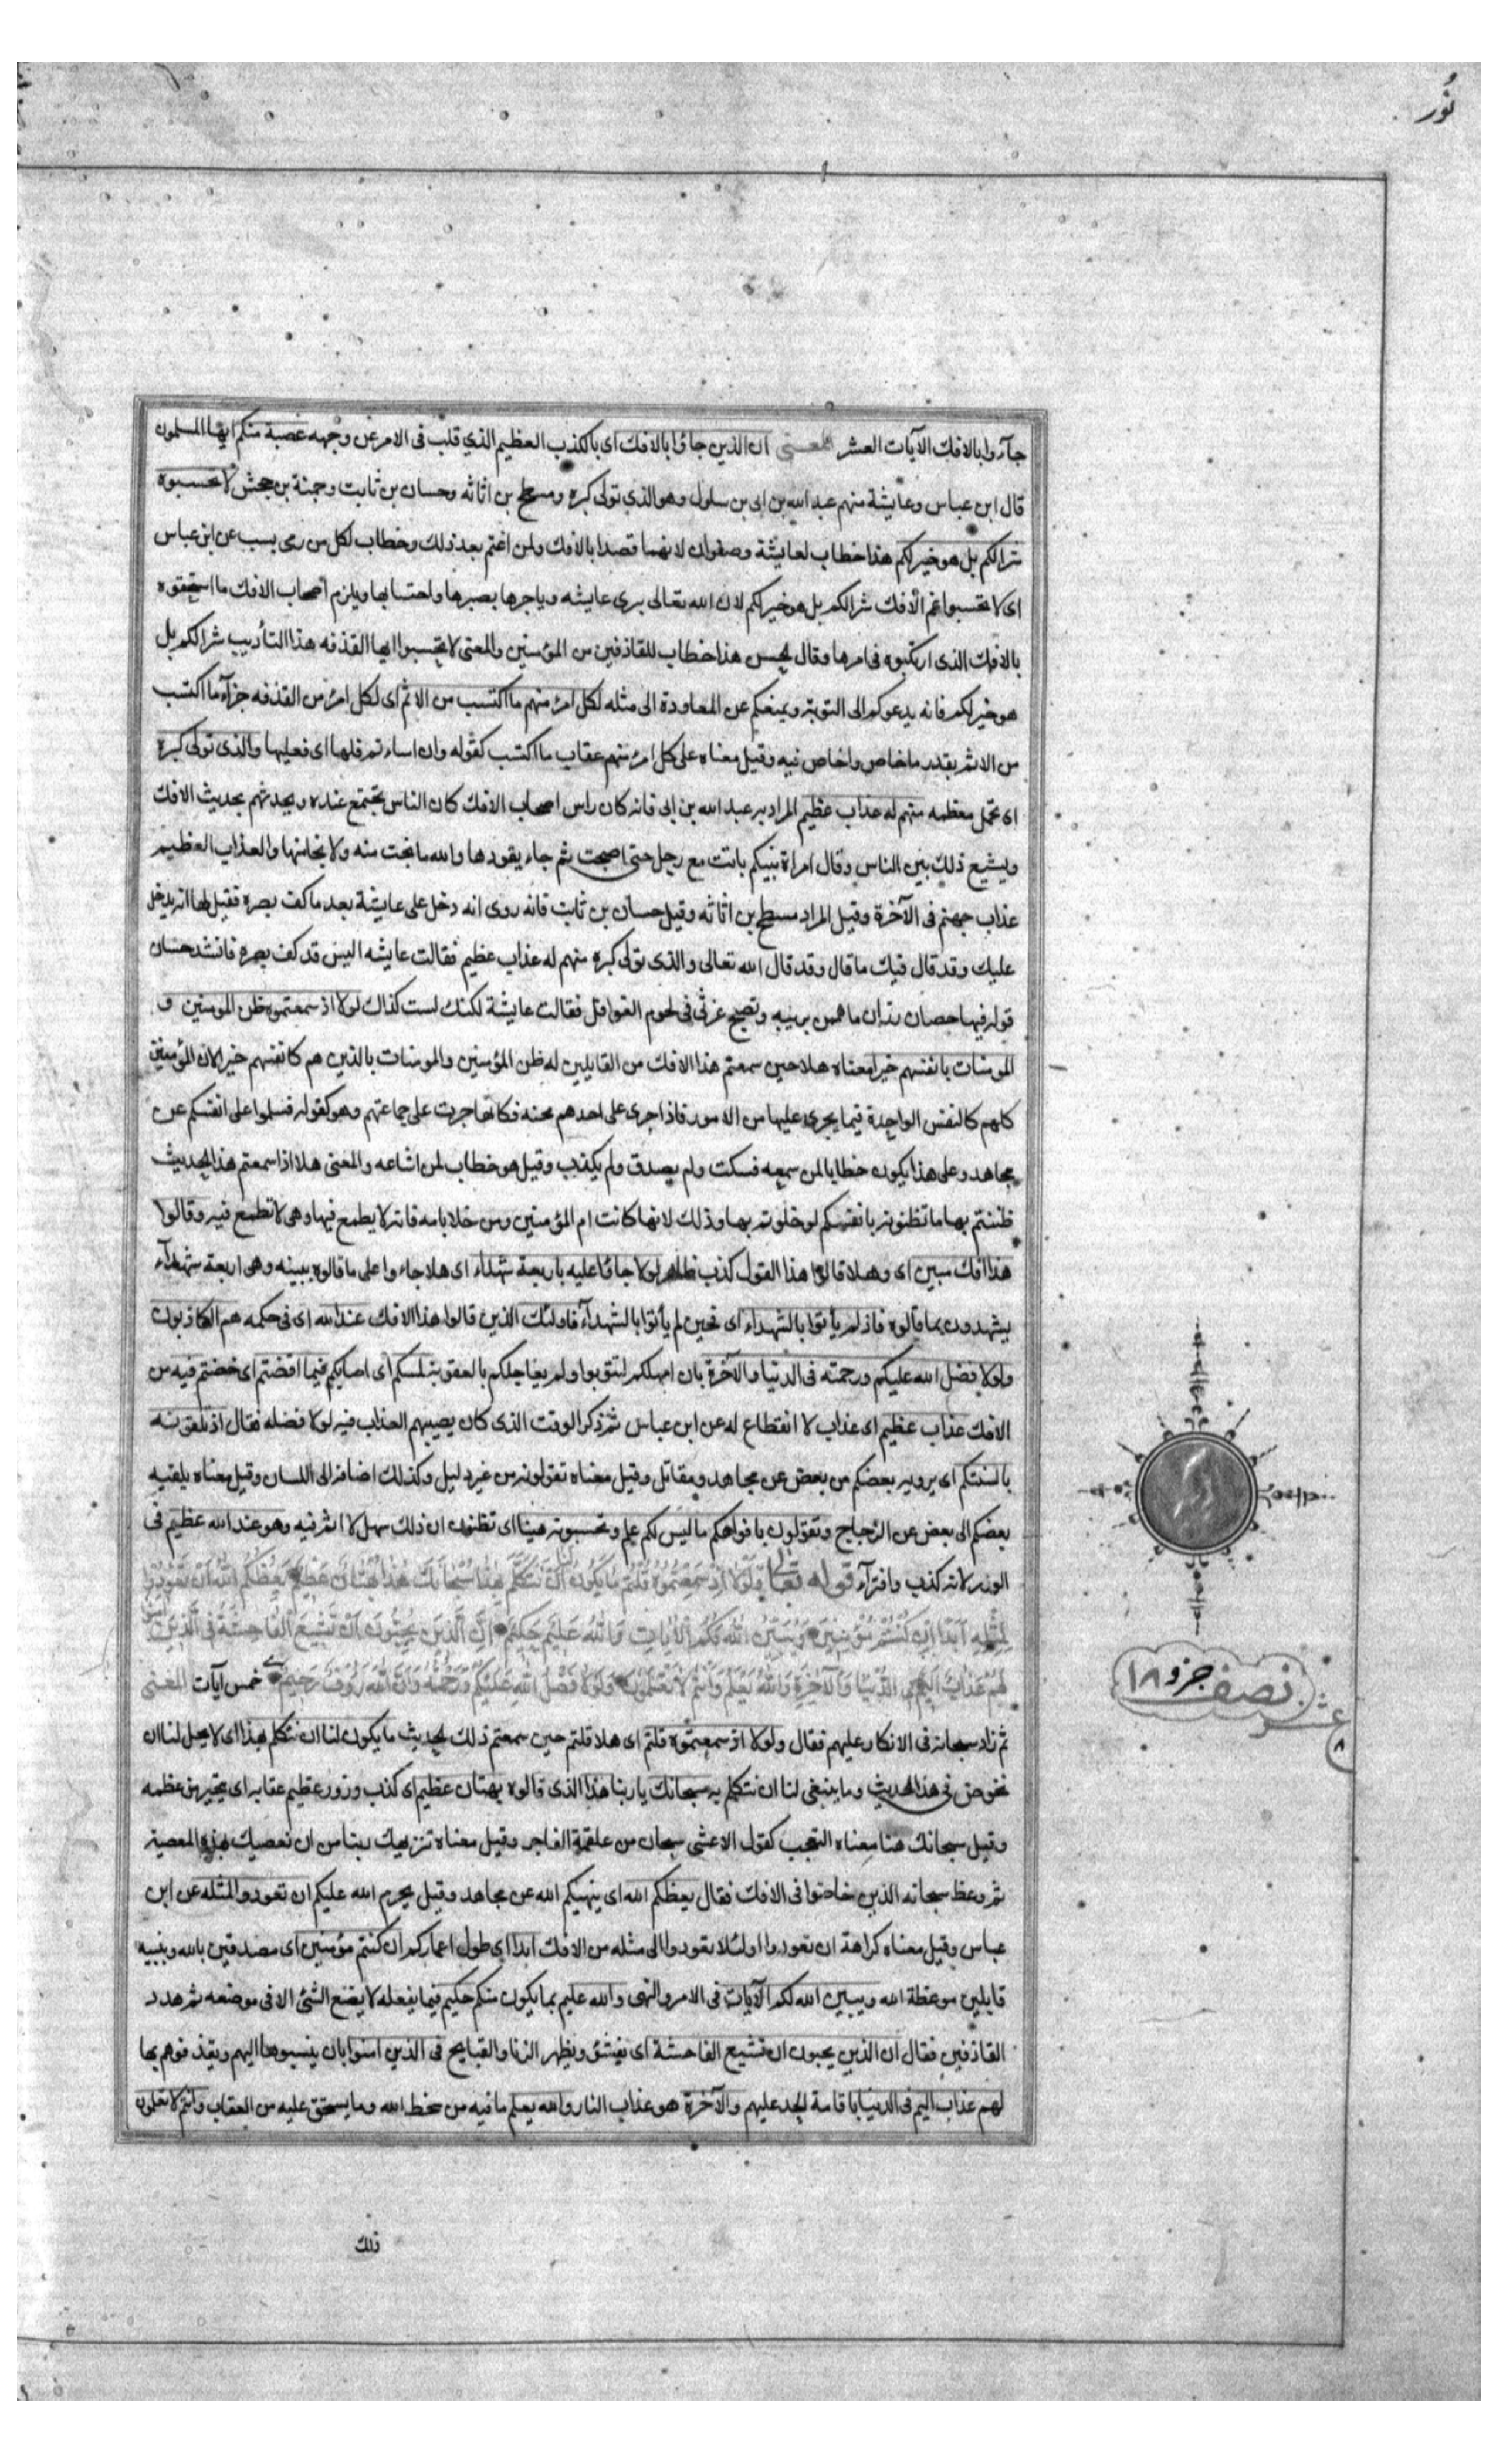 نُور
جآءوا بالافك الآيات العشر المعنى ان الذين جاؤا بالافك اى بالكذب العظيم الذي قلب فى الامر عن وجهه عصبة منكم ايها المسلمون
قال ابن عباس وعايشة منهم عبد الله بن ابى بن سلول وهو الذي تولى كبره ومسطح بن اثاثه وحسان بن ثابت وحمنة بن جحش لا تحسبوه
شرا لكم بل هو خير لكم هذا خطاب لعايشة وصفوان لانهما قصدا بالافك ولمن اغتم بعد ذلك وخطاب لكل من رمى بسب عن ابن عباس
اى لا تحسبوا غم الافك شرا لكم بل هو خير لكم لان الله تعالى يبرى عايشه وياجرها بصبرها واحتسابها ويلزم اصحاب الافك ما استحقوه
بالافك الذى ارتكبوه فى امرها وقال الحسن هذا خطاب للقاذفين من المؤمنين والمعنى لا تحسبوا ايها القذفه هذا التأديب شرا لكم بل
هو خير لكم فانه يدعوكم الى التوبة ويمنعكم عن المعاودة الى مثله لكل امرئ منهم ما اكتسب من الاثم اى لكل امرئ من القذفه جزآء ما اكتسب
من الاثم بقدر ما خاض وافاض فيه وقيل معناه على كل امرئ منهم عقاب ما اكتسب كقوله وان اساءتم فلها اى فعليها والذى تولى كبره
اى تحمل معظمه منهم له عذاب عظيم المراد به عبد الله بن ابى فانه كان راس اصحاب الافك كان الناس يجتمع عنده ويحدثهم بحديث الافك
ويشيع ذلك بين الناس وقال امراة نبيكم باتت مع رجل حتى اصبحت ثم جاء يقودها والله ما نجت منه ولا نجا منها والعذاب العظيم
عذاب جهنم فى الآخرة وقيل المراد مسطح بن اثاثه وقيل حسان بن ثابت فانه روى انه دخل على عايشة بعد ما كف بصره فقيل لها انه يدخل
عليك وقد قال فيك ما قال وقد قال الله تعالى والذى تولى كبره منهم له عذاب عظيم فقالت عايشه اليس قد كف بصره فانشد حسان
قوله فيها حصان رزان ما تهمس بريبه وتصبح غرثى فى لحوم الغوافل فقالت عايشة لكنك لست كذاك لولا اذ سمعتموه ظن المومنين و
المومنات بانفسهم خيرا معناه هلا حين سمعتم هذا الافك من القايلين له ظن المؤمنين والمومنات بالذين هم كانفسهم خيرا لان المؤمنين
كلهم كالنفس الواحدة فيما يجرى عليها من الامور فاذا جرى على احدهم محنه فكانما جرت على جماعتهم وهو كقوله فسلموا على انفسكم عن
مجاهد وعلى هذا يكون خطابا لمن سمعه فسكت ولم يصدق ولم يكذب وقيل هو خطاب لمن اشاعه والمعنى هلا اذا سمعتم هذا الحديث
ظننتم بها ما تظنونه بانفسكم لو خلوتم بها وذلك لانها كانت ام المؤمنين ومن خلا بامه فانه لا يطمع فيها وهى لا تطمع فيه وقالوا
هذا افك مبين اى وهلا قالوا هذا القول كذب ظاهر لولا جاؤا عليه باربعة شهداء اى هلا جاءوا على ما قالوه ببينه وهى اربعة شهدآء
يشهدون بما قالوه فاذ لم يأتوا بالشهداء اى فحين لم يأتوا بالشهدآء فاولئك الذين قالوا هذا الافك عند الله اى فى حكمه هم الكاذبون
ولولا فضل الله عليكم ورحمته فى الدنيا والآخرة بان امهلكم لتتوبوا ولم يعاجلكم بالعقوبة لمسكم اى اصابكم فيما افضتم اى خضتم فيه من
الافك عذاب عظيم اى عذاب لا انقطاع له عن ابن عباس ثم ذكر الوقت الذى كان يصيبهم العذاب فيه لولا فضله فقال اذ تلقونه
بالسنتكم اى يرويه بعضكم من بعض عن مجاهد ومقاتل وقيل معناه تقولونه من غير دليل وكذلك اضافه الى اللسان وقيل معناه يلقيه
بعضكم الى بعض عن الزجاج وتقولون بافواهكم ما ليس لكم علم وتحسبونه هينا اى تظنون ان ذلك سهل لا اثم فيه وهو عند الله عظيم فى
الوزر لانه كذب وافترآء قوله تعالى وَلَوْلَا اِذْ سَمِعْتُمُوهُ قُلْتُمْ مَا يَكُونُ لَنَا اَنْ نَتَكَلَّمَ بِهٰذَا سُبْحَانَكَ هٰذَا بُهْتَانٌ عَظِيمٌ يَعِظُكُمُ اللهُ اَنْ تَعُودُوا
لِمِثْلِهِ اَبَدًا اِنْ كُنْتُمْ مُؤْمِنِينَ وَيُبَيِّنُ اللهُ لَكُمُ الْاٰيَاتِ وَاللهُ عَلِيمٌ حَكِيمٌ اِنَّ الَّذِينَ يُحِبُّونَ اَنْ تَشِيعَ الْفَاحِشَةُ فِى الَّذِينَ اٰمَنُوا
لَهُمْ عَذَابٌ اَلِيمٌ فِى الدُّنْيَا وَالْاٰخِرَةِ وَاللهُ يَعْلَمُ وَاَنْتُمْ لَا تَعْلَمُونَ وَلَوْلَا فَضْلُ اللهِ عَلَيْكُمْ وَرَحْمَتُهُ وَاَنَّ اللهَ رَؤُفٌ رَحِيمٌ خمس آيات المعنى
ثم زاد سبحانه فى الانكار عليهم فقال ولولا اذ سمعتموه قلتم اى هلا قلتم حين سمعتم ذلك الحديث ما يكون لنا ان نتكلم بهذا اى لا يحل لنا ان
نخوض فى هذا الحديث وما ينبغى لنا ان نتكلم به سبحانك يا ربنا هذا الذى قالوه بهتان عظيم اى كذب وزور عظيم عقابه اى يتحير من عظمه
وقيل سبحانك هنا معناه التعجب كقول الاعشى سبحان من علقمة الفاجر وقيل معناه تنزيهك ربنا من ان نعصيك بهذه المعصية
ثم وعظ سبحانه الذين خاضوا فى الافك فقال يعظكم الله اى ينهيكم الله عن مجاهد وقيل يحرم الله عليكم ان تعودوا لمثله عن ابن
عباس وقيل معناه كراهة ان تعودوا او لئلا تعودوا الى مثله من الافك ابدا اى طول اعماركم ان كنتم مؤمنين اى مصدقين بالله ونبيه
قابلين موعظة الله ويبين الله لكم الآيات فى الامر والنهى والله عليم بما يكون منكم حكيم فيما يفعله لا يضع الشئ الا فى موضعه ثم هدد
القاذفين فقال ان الذين يحبون ان تشيع الفاحشة اى يفشو ويظهر الزنا والقبايح فى الذين امنوا بان ينسبوها اليهم ويقذفوهم بها
لهم عذاب اليم فى الدنيا باقامة الحد عليهم والآخرة هو عذاب النار والله يعلم ما فيه من سخط الله وما يستحق عليه من العقاب وانتم لا تعلمون
ذلك
نصف جزو ١٨
عشر
٨